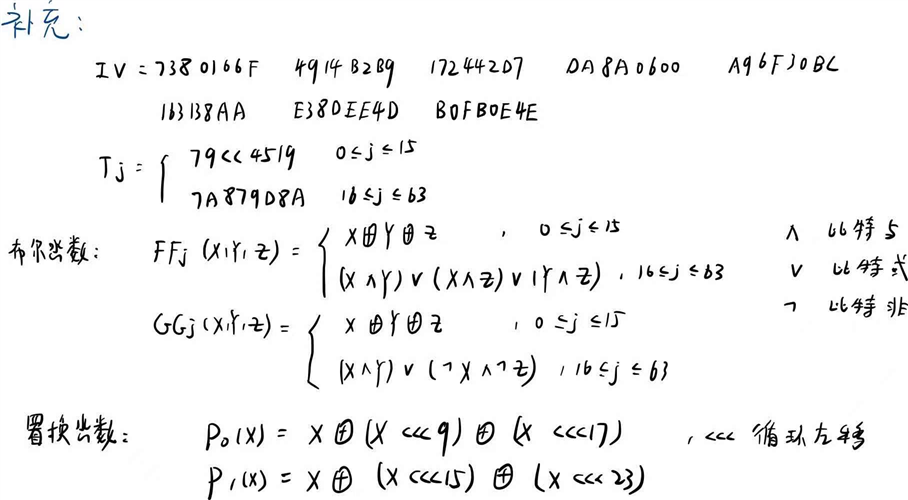 补充：
IV = 7380166F 4914B2B9 172442D7 DA8A0600 A96F30BC
163138AA E38DEE4D B0FB0E4E
Tj = { 79CC4519 0≤j≤15
7A879D8A 16≤j≤63
布尔函数： FFj(X,Y,Z) = { X⊕Y⊕Z , 0≤j≤15 ∧ 比特与
(X∧Y)∨(X∧Z)∨(Y∧Z) , 16≤j≤63 ∨ 比特或
¬ 比特非
GGj(X,Y,Z) = { X⊕Y⊕Z , 0≤j≤15
(X∧Y)∨(¬X∧¬Z) , 16≤j≤63
置换函数： P₀(X) = X⊕(X<<<9)⊕(X<<<17) , <<< 循环左移
P₁(X) = X⊕(X<<<15)⊕(X<<<23)